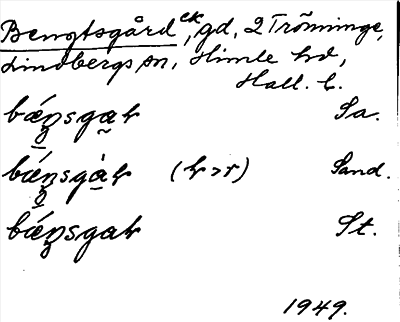 Bengtsgård ek, gd, 2 Trönninge,
Lindbergs sn, Himle hd,
Hall. l.
bǽŋsgar Sa.
bǽŋsgàr (r>r) Sand.
bǽŋsgar St.
1949.